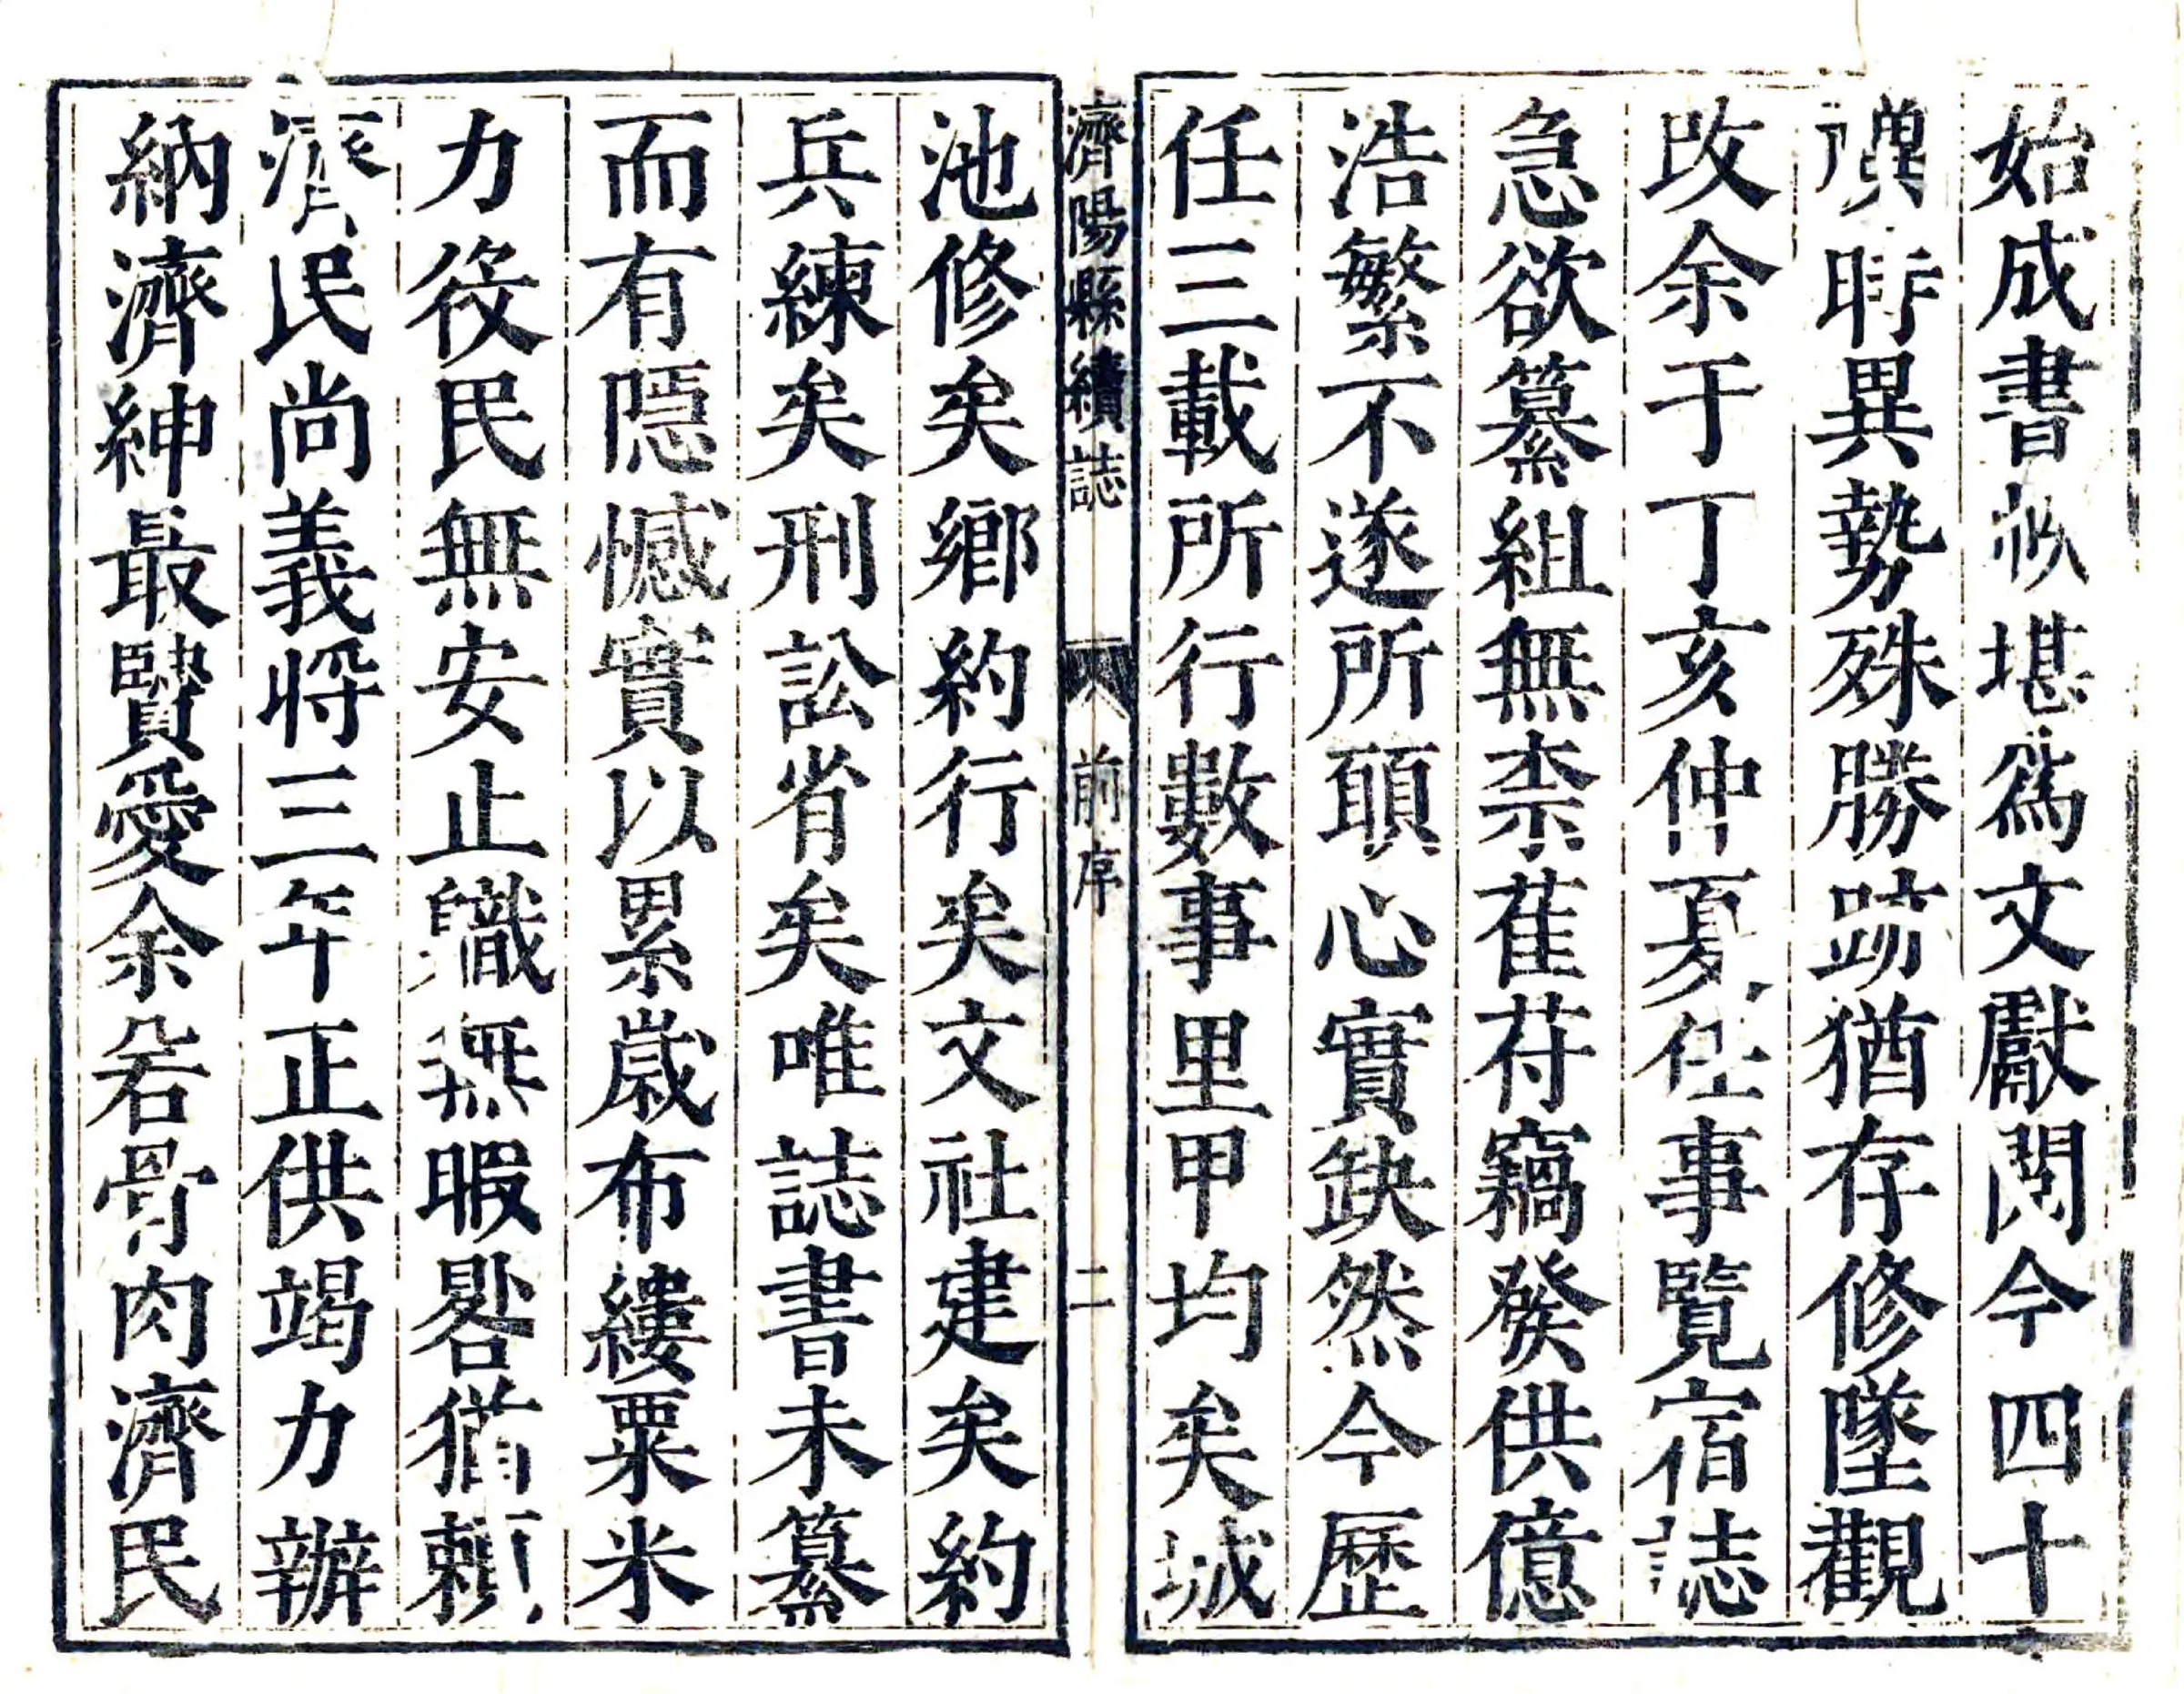 始成書堪爲文獻閱今四十
禩時異勢殊勝跡猶存修墜觀
改余于丁亥仲夏任事覽宿誌
急欲纂組無柰萑苻竊發供億
浩繁不遂所願心實缺然今歷
任三載所行數事里甲均矣城
濟陽縣續誌 前序 二
池修矣鄉約行矣文社建矣約
兵練矣刑訟省矣唯誌書未纂
而有隱憾實以累歲布縷粟米
力役民無安止職無暇晷猶賴
濟民尚義將三年正供竭力辦
納濟紳最賢愛余若骨肉濟民